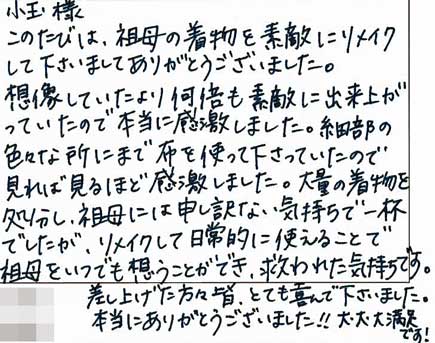 小玉様
このたびは、祖母の着物を素敵にリメイク
して下さいましてありがとうございました。
想像していたより何倍も素敵に出来上が
っていたので本当に感激しました。細部の
色々な所にまで布を使って下さっていたので
見れば見るほど感激しました。大量の着物を
処分し、祖母には申し訳ない気持ちで一杯
でしたが、リメイクして日常的に使えることで
祖母をいつでも想うことができ、救われた気持ちです。
差し上げた方々皆、とても喜んで下さいました。
本当にありがとうございました!! 大大大満足
です!